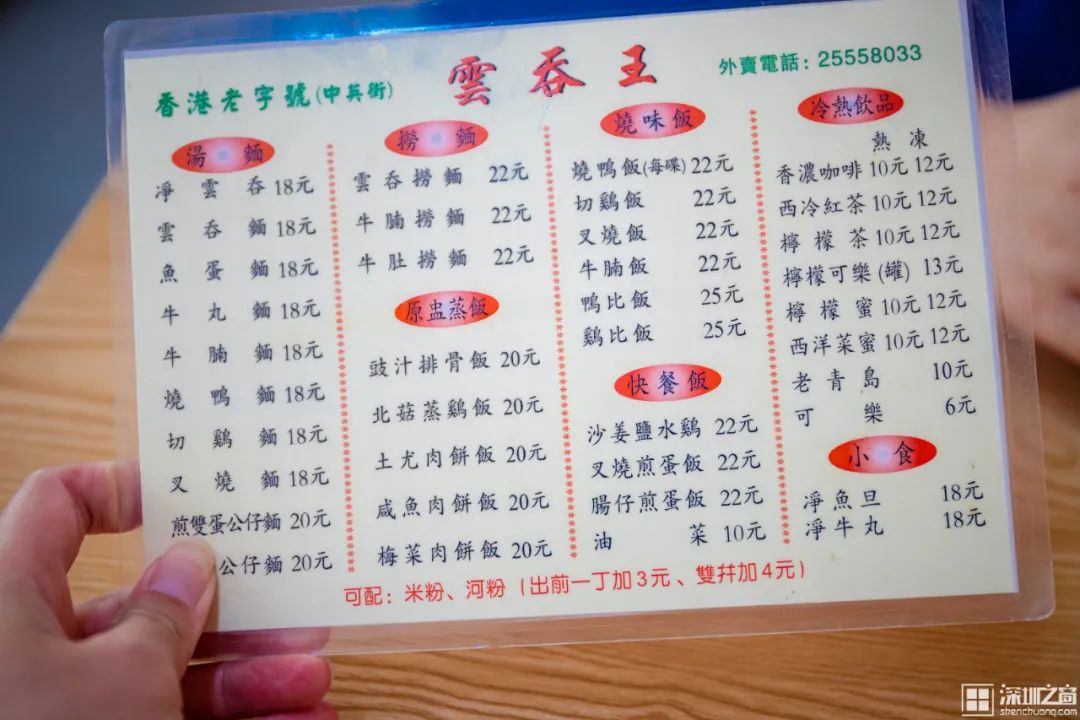 香港老字號(中英街)
雲吞王
外賣電話：25558033
湯麵
凈雲吞 18元
雲吞麵 18元
魚蛋麵 18元
牛丸麵 18元
牛腩麵 18元
燒鴨麵 18元
切鷄麵 18元
叉燒麵 18元
煎雙蛋公仔麵 20元
公仔麵 20元
撈麵
雲吞撈麵 22元
牛腩撈麵 22元
牛肚撈麵 22元
原盅蒸飯
豉汁排骨飯 20元
北菇蒸鷄飯 20元
土尤肉餅飯 20元
咸魚肉餅飯 20元
梅菜肉餅飯 20元
燒味飯
燒鴨飯(每碟) 22元
切鷄飯 22元
叉燒飯 22元
牛腩飯 22元
鴨比飯 25元
鷄比飯 25元
快餐飯
沙姜鹽水鷄 22元
叉燒煎蛋飯 22元
腸仔煎蛋飯 22元
油菜 10元
冷熱飲品
熱 凍
香濃咖啡 10元 12元
西冷紅茶 10元 12元
檸檬茶 10元 12元
檸檬可樂(罐) 13元
檸檬蜜 10元 12元
西洋菜蜜 10元 12元
老青島 10元
可樂 6元
小食
凈魚旦 18元
凈牛丸 18元
可配：米粉、河粉（出前一丁加3元、雙幷加4元）
深圳之窗
shenchuang.com